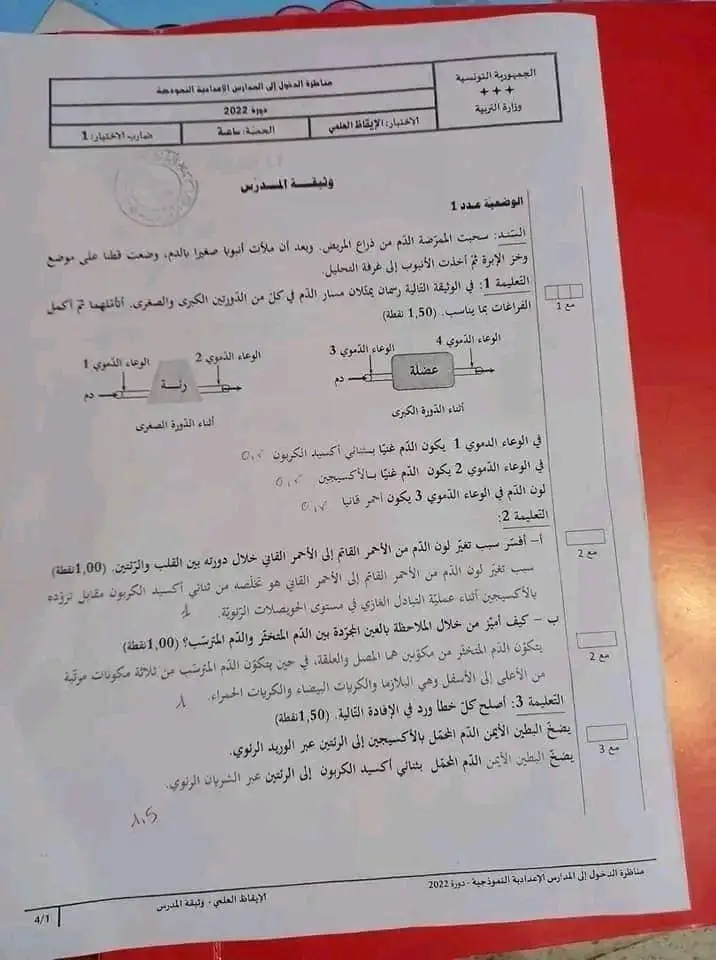 الجمهورية التونسية
+ + +
وزارة التربية
مناظرة الدخول إلى المدارس الإعدادية النموذجية
دورة 2022
الاختبار: الإيقاظ العلمي
الحصّة: ساعة
ضارب الاختبار: 1
وثيقة المدرّس
الوضعيّة عدد 1
السّند: سحبت الممرّضة الدّم من ذراع المريض. وبعد أن ملأت أنبوبا صغيرا بالدم، وضعت قطنا على موضع
وخز الإبرة ثمّ أخذت الأنبوب إلى غرفة التحليل.
التعليمة 1: في الوثيقة التالية رسمان يمثّلان مسار الدّم في كلّ من الدّورتين الكبرى والصغرى. أتأمّلهما ثمّ أكمل
الفراغات بما يناسب. (1,50 نقطة)
مع 1
الوعاء الدّموي 4
الوعاء الدّموي 3
عضلة
دم
أثناء الدّورة الكبرى
الوعاء الدّموي 2
الوعاء الدّموي 1
رئة
دم
أثناء الدّورة الصغرى
في الوعاء الدموي 1 يكون الدّم غنيّا بـثنائي أكسيد الكربون
في الوعاء الدّموي 2 يكون الدّم غنيّا بـالأكسيجين
لون الدّم في الوعاء الدّموي 3 يكون أحمر قانيا
التعليمة 2:
أ- أفسّر سبب تغيّر لون الدّم من الأحمر القاتم إلى الأحمر القاني خلال دورته بين القلب والرّئتين. (1,00 نقطة)
مع 2
سبب تغيّر لون الدّم من الأحمر القاتم إلى الأحمر القاني هو تخلّصه من ثنائي أكسيد الكربون مقابل تزوّده
بالأكسيجين أثناء عمليّة التبادل الغازي في مستوى الحويصلات الرّئويّة. 1
ب - كيف أميّز من خلال الملاحظة بالعين المجرّدة بين الدّم المتخثّر والدّم المترسّب؟ (1,00 نقطة)
مع 2
يتكوّن الدّم المتخثّر من مكوّنين هما المصل والعلقة، في حين يتكوّن الدّم المترسّب من ثلاثة مكونات مرتّبة
من الأعلى إلى الأسفل وهي البلازما والكريات البيضاء والكريات الحمراء. 1
التعليمة 3: أصلح كلّ خطأ ورد في الإفادة التالية. (1,50 نقطة)
مع 3
يضخّ البطين الأيمن الدّم المحمّل بالأكسيجين إلى الرئتين عبر الوريد الرئوي.
يضخّ البطين الأيمن الدّم المحمّل بثنائي أكسيد الكربون إلى الرئتين عبر الشريان الرئوي.
1,5
مناظرة الدخول إلى المدارس الإعدادية النموذجية - دورة 2022
الإيقاظ العلمي - وثيقة المدرس
4/1